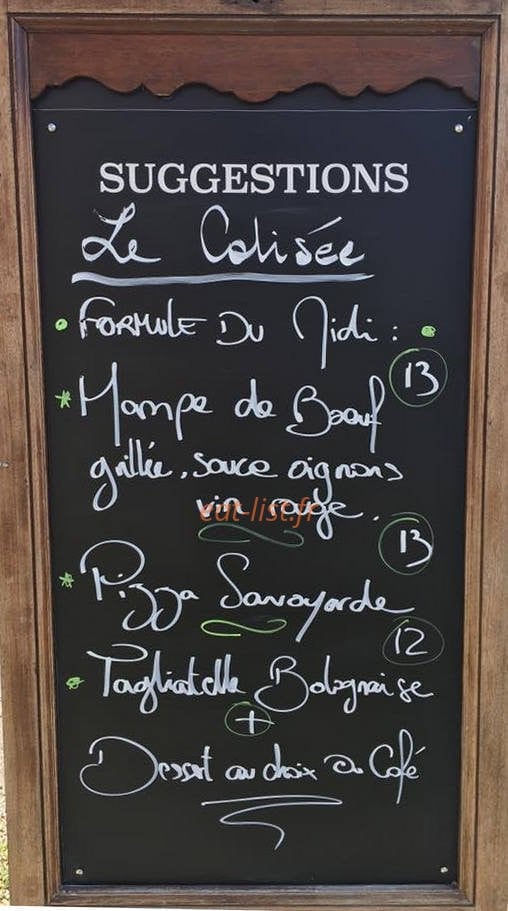 SUGGESTIONS
Le Colisée
FORMULE DU Midi :
13
* Hampe de Boeuf
grillée, sauce oignons
vin rouge.
eat-list.fr
13
* Pizza Savoyarde
12
* Tagliatelle Bolognaise
+
Dessert au choix ou Café